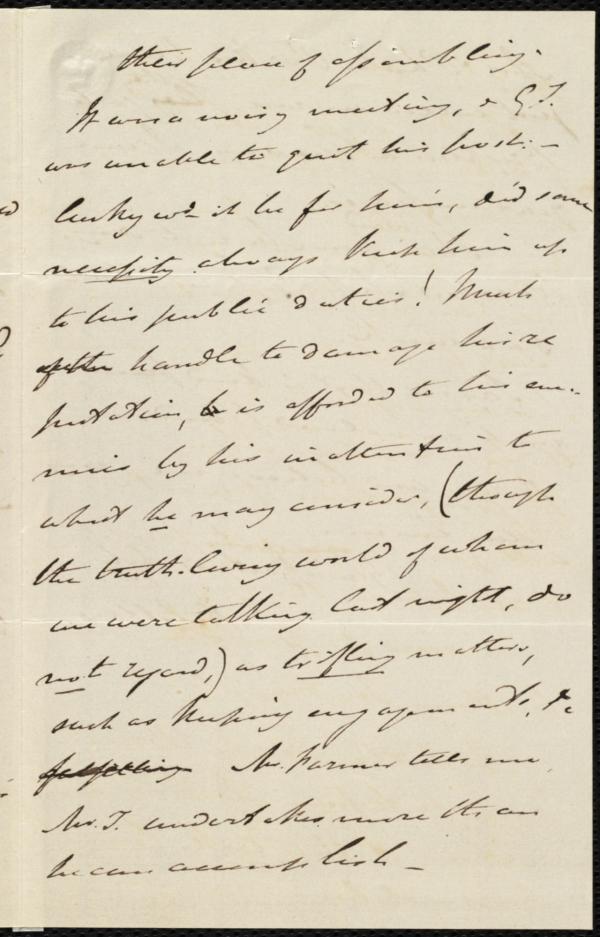 their place of assembling.
It was a noisy meeting, & G.T.
was unable to quit his post: –
lucky wd it be for him, did some
necessity always keep him up
to his public duties! Much
handle to damage his re
putation, is afforded to his ene-
mies by his inattention to
what he may consider, (though
the truth-loving world of whom
we were talking last night, do
not regard,) as trifling matters,
such as keeping engagements, &c
Mr. Farmer tells me
Mr. T. undertakes more than
he can accomplish –